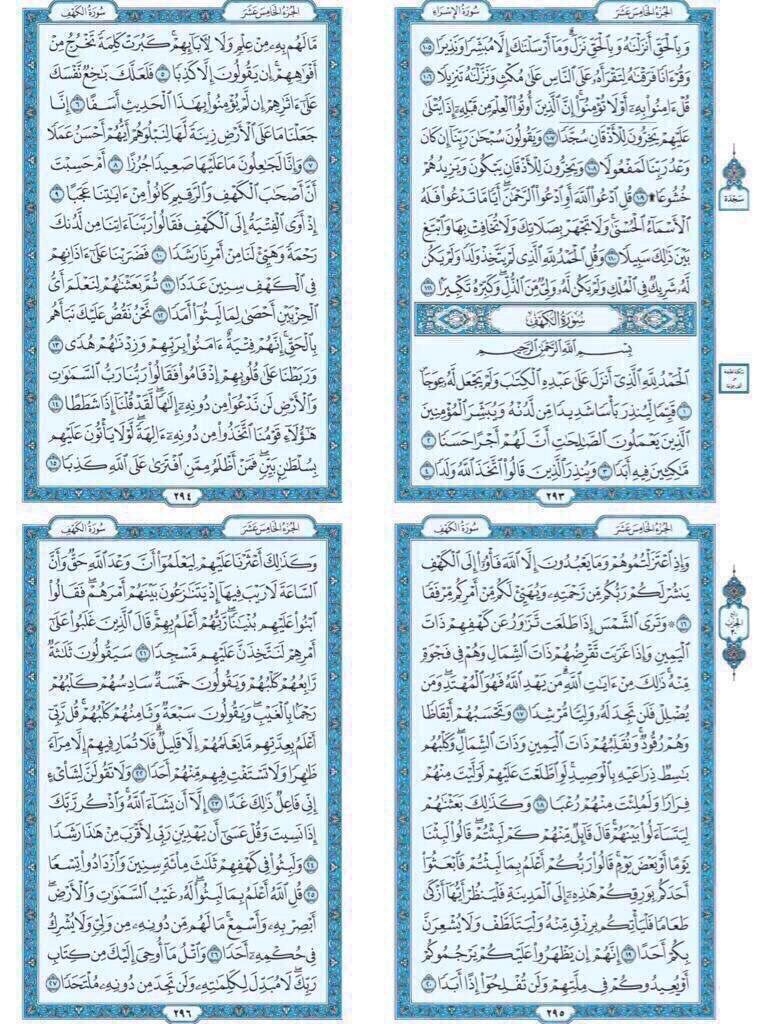 سورة الإسراء
الجزء الخامس عشر
وبالحق أنزلناه وبالحق نزل وما أرسلناك إلا مبشرا ونذيرا ١٠٥
وقرءانا فرقناه لتقرأه على الناس على مكث ونزلناه تنزيلا ١٠٦
قل ءامنوا به أو لا تؤمنوا إن الذين أوتوا العلم من قبله إذا يتلى
عليهم يخرون للأذقان سجدا ١٠٧ ويقولون سبحان ربنا إن كان
وعد ربنا لمفعولا ١٠٨ ويخرون للأذقان يبكون ويزيدهم
خشوعا ۩ ١٠٩ قل ادعوا الله أو ادعوا الرحمن أيا ما تدعوا فله
الأسماء الحسنى ولا تجهر بصلاتك ولا تخافت بها وابتغ
بين ذلك سبيلا ١١٠ وقل الحمد لله الذي لم يتخذ ولدا ولم يكن
له شريك في الملك ولم يكن له ولي من الذل وكبره تكبيرا ١١١
سورة الكهف
بسم الله الرحمن الرحيم
الحمد لله الذي أنزل على عبده الكتاب ولم يجعل له عوجا
١ قيما لينذر بأسا شديدا من لدنه ويبشر المؤمنين
الذين يعملون الصالحات أن لهم أجرا حسنا ٢
ماكثين فيه أبدا ٣ وينذر الذين قالوا اتخذ الله ولدا ٤
٢٩٣
سجدة
سورة الكهف
الجزء الخامس عشر
ما لهم به من علم ولا لآبائهم كبرت كلمة تخرج من
أفواههم إن يقولون إلا كذبا ٥ فلعلك باخع نفسك
على ءاثارهم إن لم يؤمنوا بهذا الحديث أسفا ٦ إنا
جعلنا ما على الأرض زينة لها لنبلوهم أيهم أحسن عملا
٧ وإنا لجاعلون ما عليها صعيدا جرزا ٨ أم حسبت
أن أصحاب الكهف والرقيم كانوا من ءاياتنا عجبا ٩
إذ أوى الفتية إلى الكهف فقالوا ربنا ءاتنا من لدنك
رحمة وهيئ لنا من أمرنا رشدا ١٠ فضربنا على ءاذانهم
في الكهف سنين عددا ١١ ثم بعثناهم لنعلم أي
الحزبين أحصى لما لبثوا أمدا ١٢ نحن نقص عليك نبأهم
بالحق إنهم فتية ءامنوا بربهم وزدناهم هدى ١٣
وربطنا على قلوبهم إذ قاموا فقالوا ربنا رب السماوات
والأرض لن ندعوا من دونه إلها لقد قلنا إذا شططا ١٤
هؤلاء قومنا اتخذوا من دونه ءالهة لولا يأتون عليهم
بسلطان بين فمن أظلم ممن افترى على الله كذبا ١٥
٢٩٤
سورة الكهف
الجزء الخامس عشر
وإذ اعتزلتموهم وما يعبدون إلا الله فأووا إلى الكهف
ينشر لكم ربكم من رحمته ويهيئ لكم من أمركم مرفقا
١٦ ۞ وترى الشمس إذا طلعت تزاور عن كهفهم ذات
اليمين وإذا غربت تقرضهم ذات الشمال وهم في فجوة
منه ذلك من ءايات الله من يهد الله فهو المهتد ومن
يضلل فلن تجد له وليا مرشدا ١٧ وتحسبهم أيقاظا
وهم رقود ونقلبهم ذات اليمين وذات الشمال وكلبهم
باسط ذراعيه بالوصيد لو اطلعت عليهم لوليت منهم
فرارا ولملئت منهم رعبا ١٨ وكذلك بعثناهم
ليتساءلوا بينهم قال قائل منهم كم لبثتم قالوا لبثنا
يوما أو بعض يوم قالوا ربكم أعلم بما لبثتم فابعثوا
أحدكم بورقكم هذه إلى المدينة فلينظر أيها أزكى
طعاما فليأتكم برزق منه وليتلطف ولا يشعرن
بكم أحدا ١٩ إنهم إن يظهروا عليكم يرجموكم
أو يعيدوكم في ملتهم ولن تفلحوا إذا أبدا ٢٠
٢٩٥
سورة الكهف
الجزء الخامس عشر
وكذلك أعثرنا عليهم ليعلموا أن وعد الله حق وأن
الساعة لا ريب فيها إذ يتنازعون بينهم أمرهم فقالوا
ابنوا عليهم بنيانا ربهم أعلم بهم قال الذين غلبوا على
أمرهم لنتخذن عليهم مسجدا ٢١ سيقولون ثلاثة
رابعهم كلبهم ويقولون خمسة سادسهم كلبهم
رجما بالغيب ويقولون سبعة وثامنهم كلبهم قل ربي
أعلم بعدتهم ما يعلمهم إلا قليل فلا تمار فيهم إلا مراء
ظاهرا ولا تستفت فيهم منهم أحدا ٢٢ ولا تقولن لشايء
إني فاعل ذلك غدا ٢٣ إلا أن يشاء الله واذكر ربك
إذا نسيت وقل عسى أن يهدين ربي لأقرب من هذا رشدا
٢٤ ولبثوا في كهفهم ثلاث مائة سنين وازدادوا تسعا
٢٥ قل الله أعلم بما لبثوا له غيب السماوات والأرض
أبصر به وأسمع ما لهم من دونه من ولي ولا يشرك
في حكمه أحدا ٢٦ واتل ما أوحي إليك من كتاب
ربك لا مبدل لكلماته ولن تجد من دونه ملتحدا ٢٧
٢٩٦